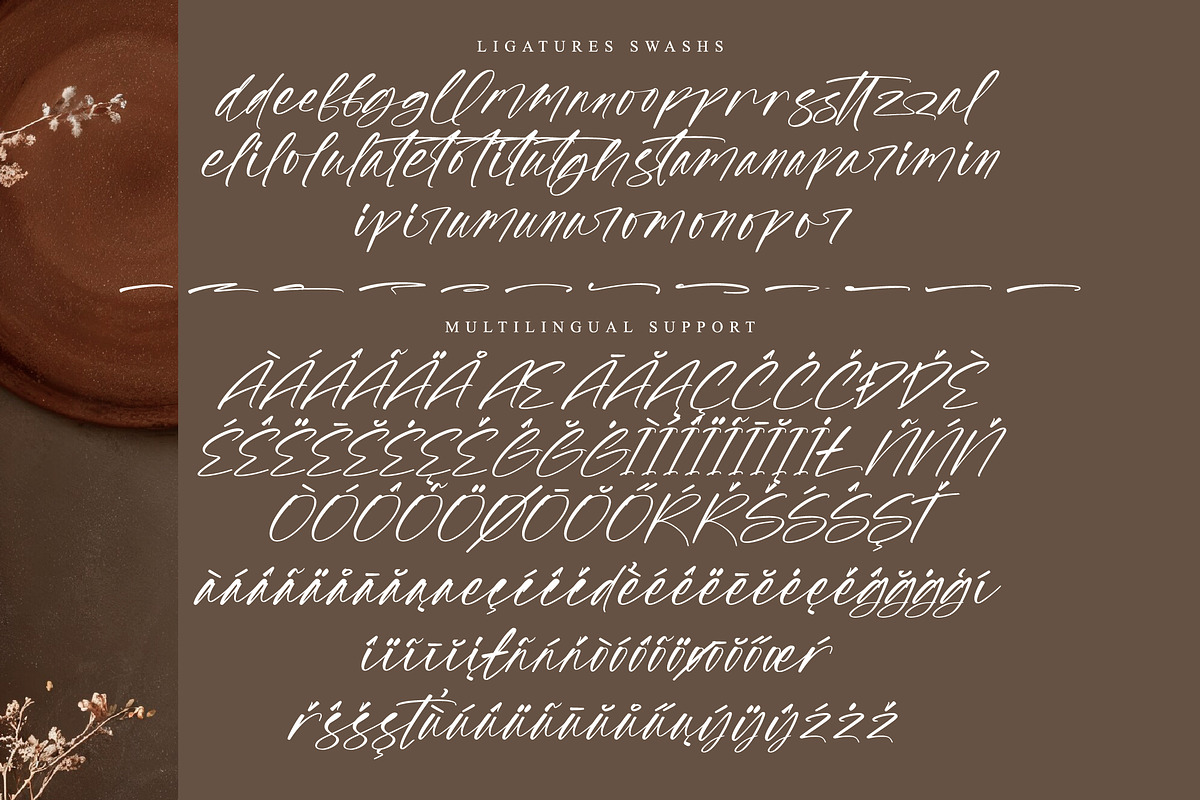 LIGATURES SWASHS
ddeeffggllmmnnoopprrssttzzal
elilolulatetotitutghstamanaparimin
ipirumunuromonopor
MULTILINGUAL SUPPORT
ÀÁÂÃÄÅÆĀĂĄÇĈĊČĐĎÈ
ÉÊËĒĔĖĘĚĜĞĠÌÍÎÏĨĪĬĮİŁÑŃŇ
ÒÓÔÕÖØŌŎŐŔŘŠŚŜŞŤ
àáâãäåāăąæçćĉčďèéêëēĕėęěĝğġģí
îïĩīĭįłñńňòóôõöøōŏőœŕ
řŝšşťùúûüũūŭůűųýÿŷźżž